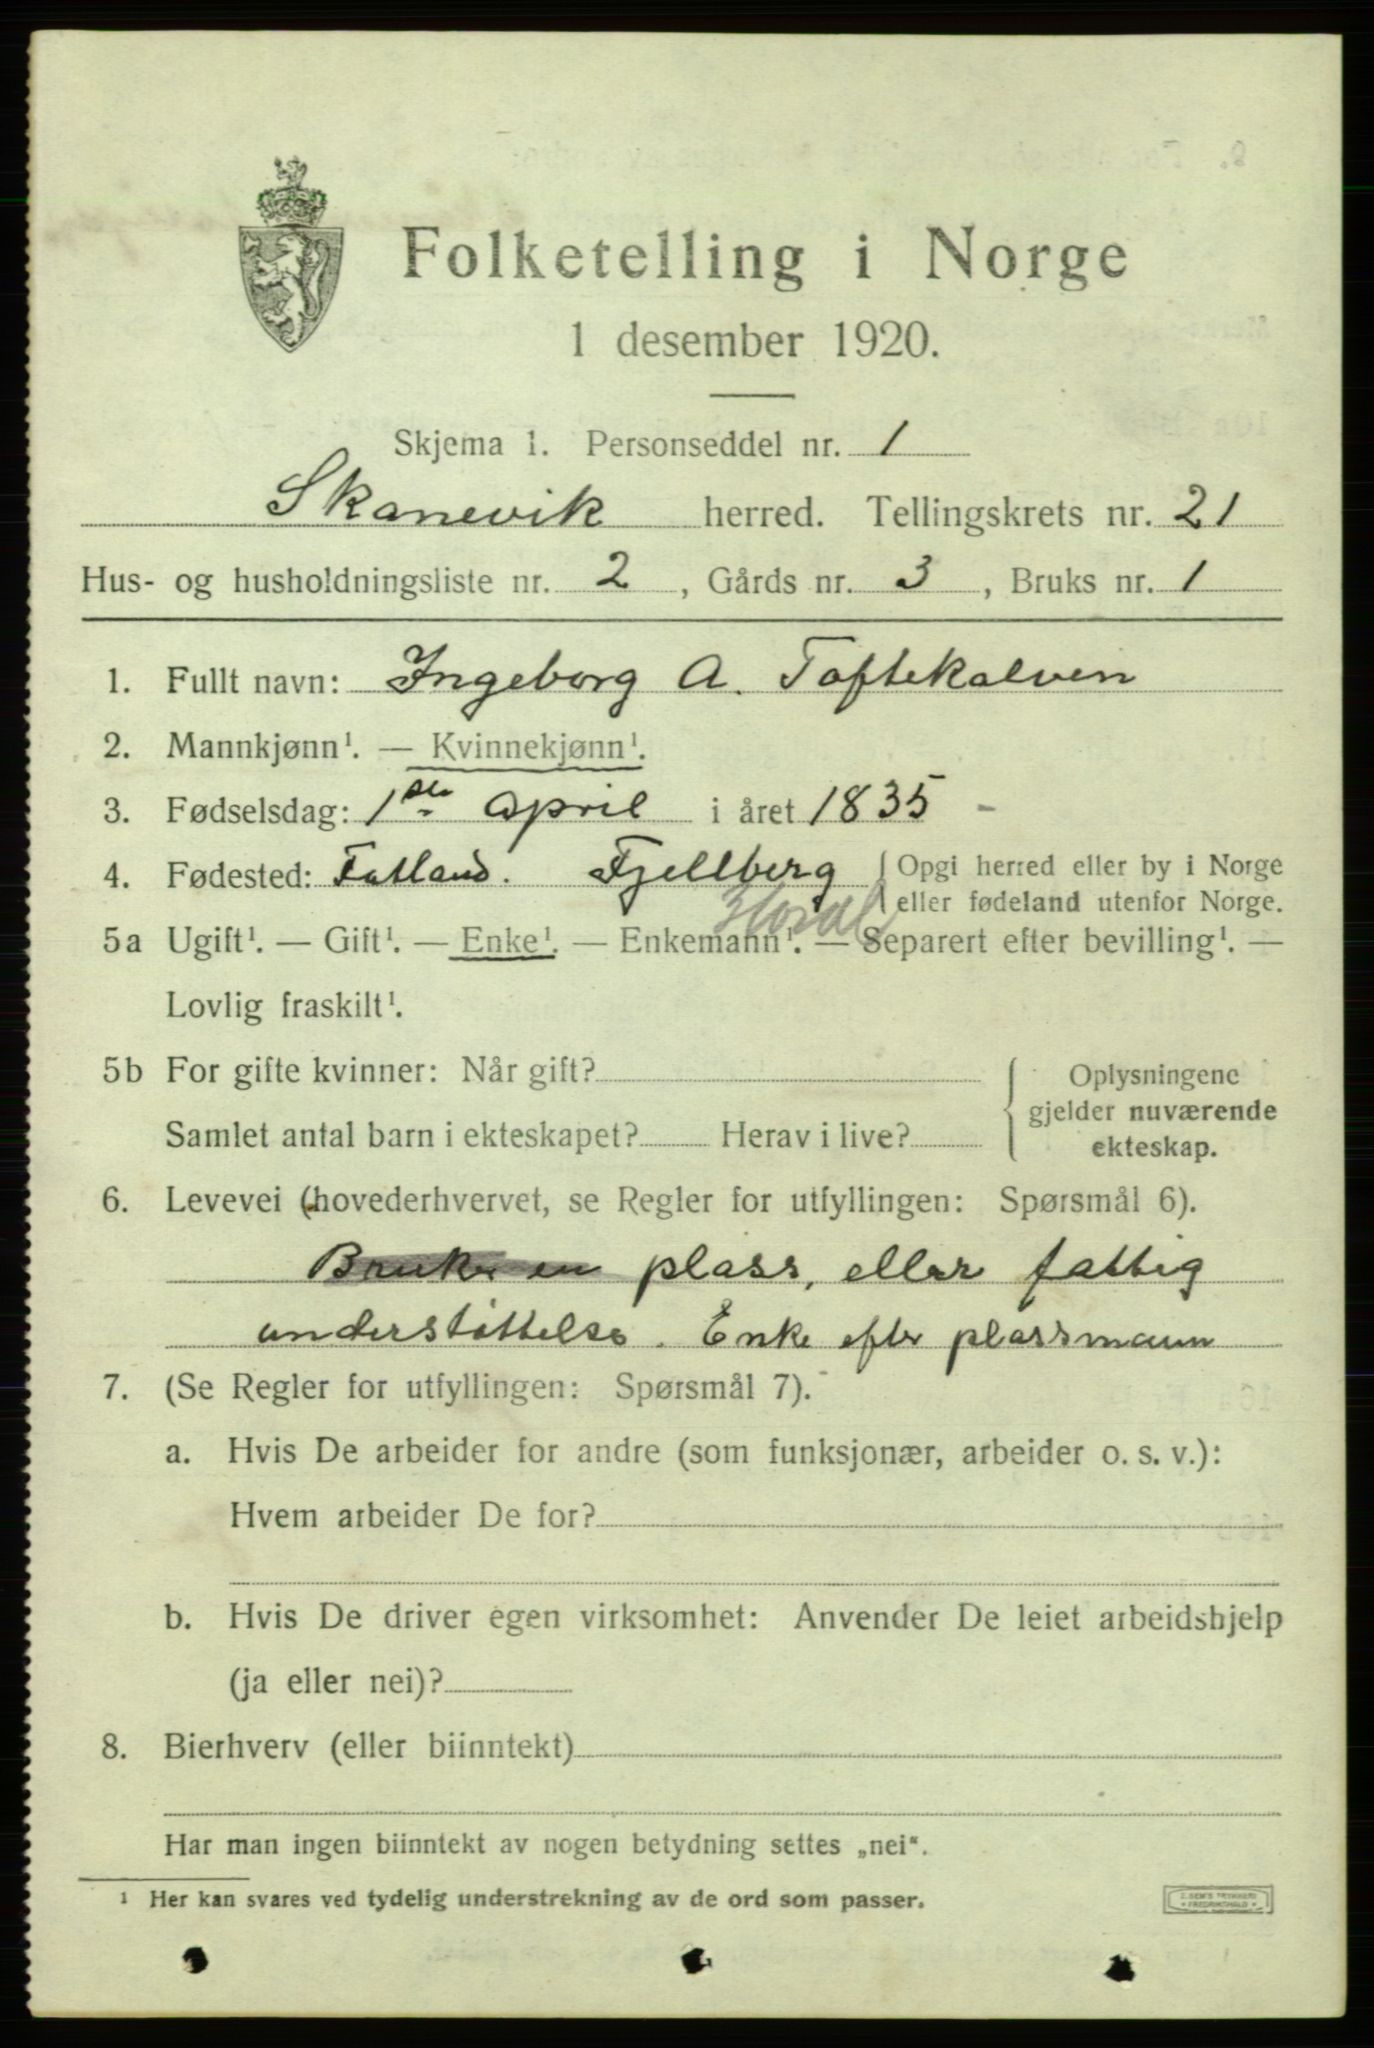 Folketelling i Norge
1 desember 1920.
Skjema 1. Personseddel nr. 1
Skanevik herred. Tellingskrets nr. 21
Hus- og husholdningsliste nr. 2, Gårds nr. 3, Bruks nr. 1
1. Fullt navn: Ingeborg A. Toftekalven
2. Mannkjønn¹. — Kvinnekjønn¹.
3. Fødselsdag: 1ste April i året 1835
4. Fødested: Fatland. Fjellberg { Opgi herred eller by i Norge
eller fødeland utenfor Norge.
5a Ugift¹. — Gift¹. — Enke¹. — Enkemann¹. — Separert efter bevilling¹. —
Lovlig fraskilt¹.
5b For gifte kvinner: Når gift? { Oplysningene
gjelder nuværende
Samlet antal barn i ekteskapet? Herav i live? ekteskap.
6. Levevei (hovederhvervet, se Regler for utfyllingen: Spørsmål 6).
Bruker en plass, eller fattig
understøttelse. Enke efter plassmann
7. (Se Regler for utfyllingen: Spørsmål 7).
a. Hvis De arbeider for andre (som funksjonær, arbeider o. s. v.):
Hvem arbeider De for?
b. Hvis De driver egen virksomhet: Anvender De leiet arbeidshjelp
(ja eller nei)?
8. Bierhverv (eller biinntekt)
Har man ingen biinntekt av nogen betydning settes „nei".
¹ Her kan svares ved tydelig understrekning av de ord som passer.